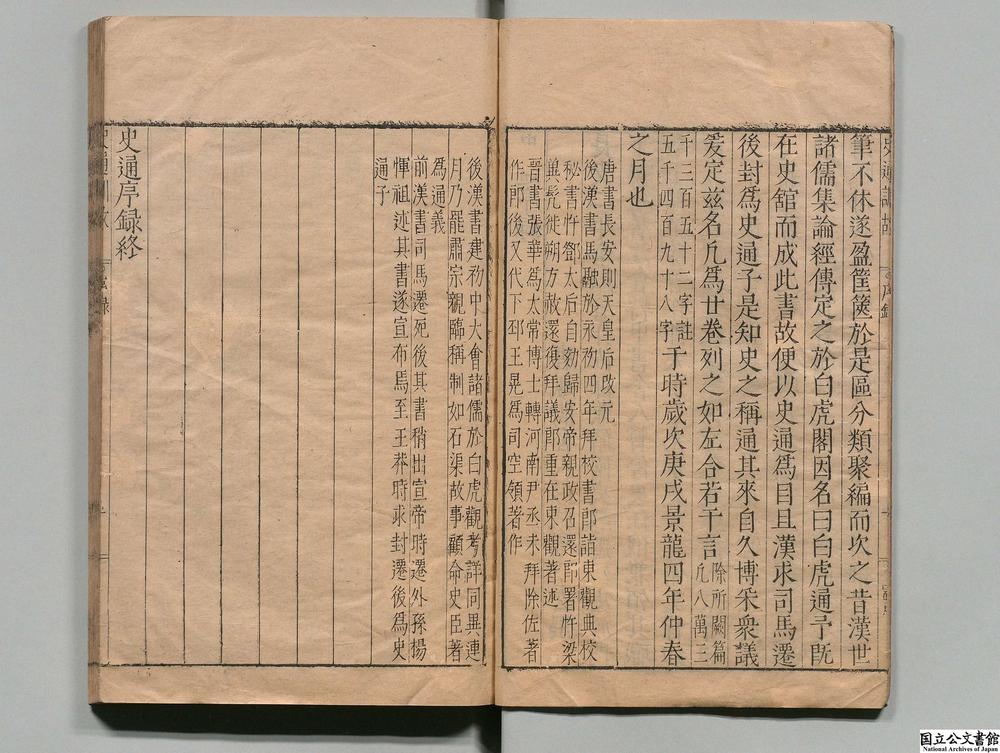 筆不休遂盈筐篋於是區分類聚編而次之昔漢世
諸儒集論經傳定之於白虎閣因名曰白虎通予既
在史舘而成此書故便以史通爲目且漢求司馬遷
後封爲史通子是知史之稱通其來自久博采衆議
爰定茲名凡爲廿卷列之如左合若干言除所闕篇
凡八萬三
千三百五十二字註
五千四百九十八字于時歲次庚戌景龍四年仲春
之月也
唐書長安則天皇后改元
後漢書馬融於永初四年拜校書郎詣東觀典校
秘書忤鄧太后自劾歸安帝親政召還郎署忤梁
兾髠徙朔方赦還復拜議郎重在東觀著述
晉書張華爲太常博士轉河南尹丞未拜除佐著
作郎後又代下邳王晃爲司空領著作
後漢書建初中大會諸儒於白虎觀考詳同異連
月乃罷肅宗親臨稱制如石渠故事顧命史臣著
爲通義
前漢書司馬遷死後其書稍出宣帝時遷外孫楊
惲祖述其書遂宣布焉至王莽時求封遷後爲史
通子
史通序録終
国立公文書館
National Archives of Japan